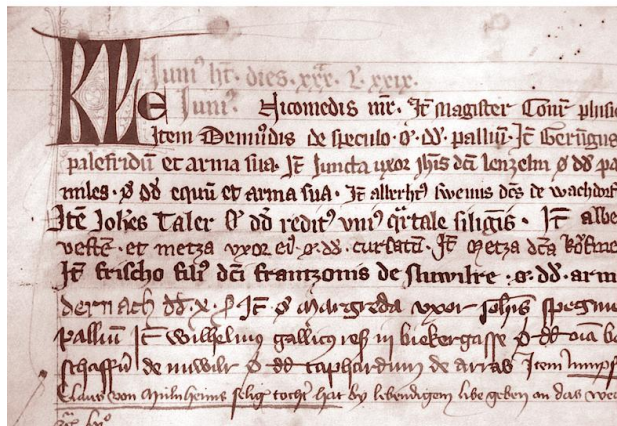 Juni⁹ ht. dies. xxx. L. xxix.
KL e Juni⁹. Nicomedis mr. It Magister Conr phisi
Item Demůdis de speculo . ø. dd. palliuͫ. It Gerūgus
palefridū et arma sua. It Juncta uxor Johis dci lenzelin ø dd pa
miles . ø dd equū et arma sua. It alberht⁹ swenus dcs de wachd
Itē Johes Taler ø dd redit⁹ vni⁹ qrtale siliginis . It albe
vestē . et metza vxor ei⁹ . ø. dd. cursatū . It Metza dca
It frischo fili⁹ dci frantzonis de sluwilre . ø. dd. arm
dernach dd. x. It ø Margreda vxor Johis
palliū It Wilhelmus gallicus in biekergasse ø dd oīa
de nuwilr ø dd taphardum de arras Item
Claus von Mulnheims selig tocht hat by lebendigem libe geben an das we